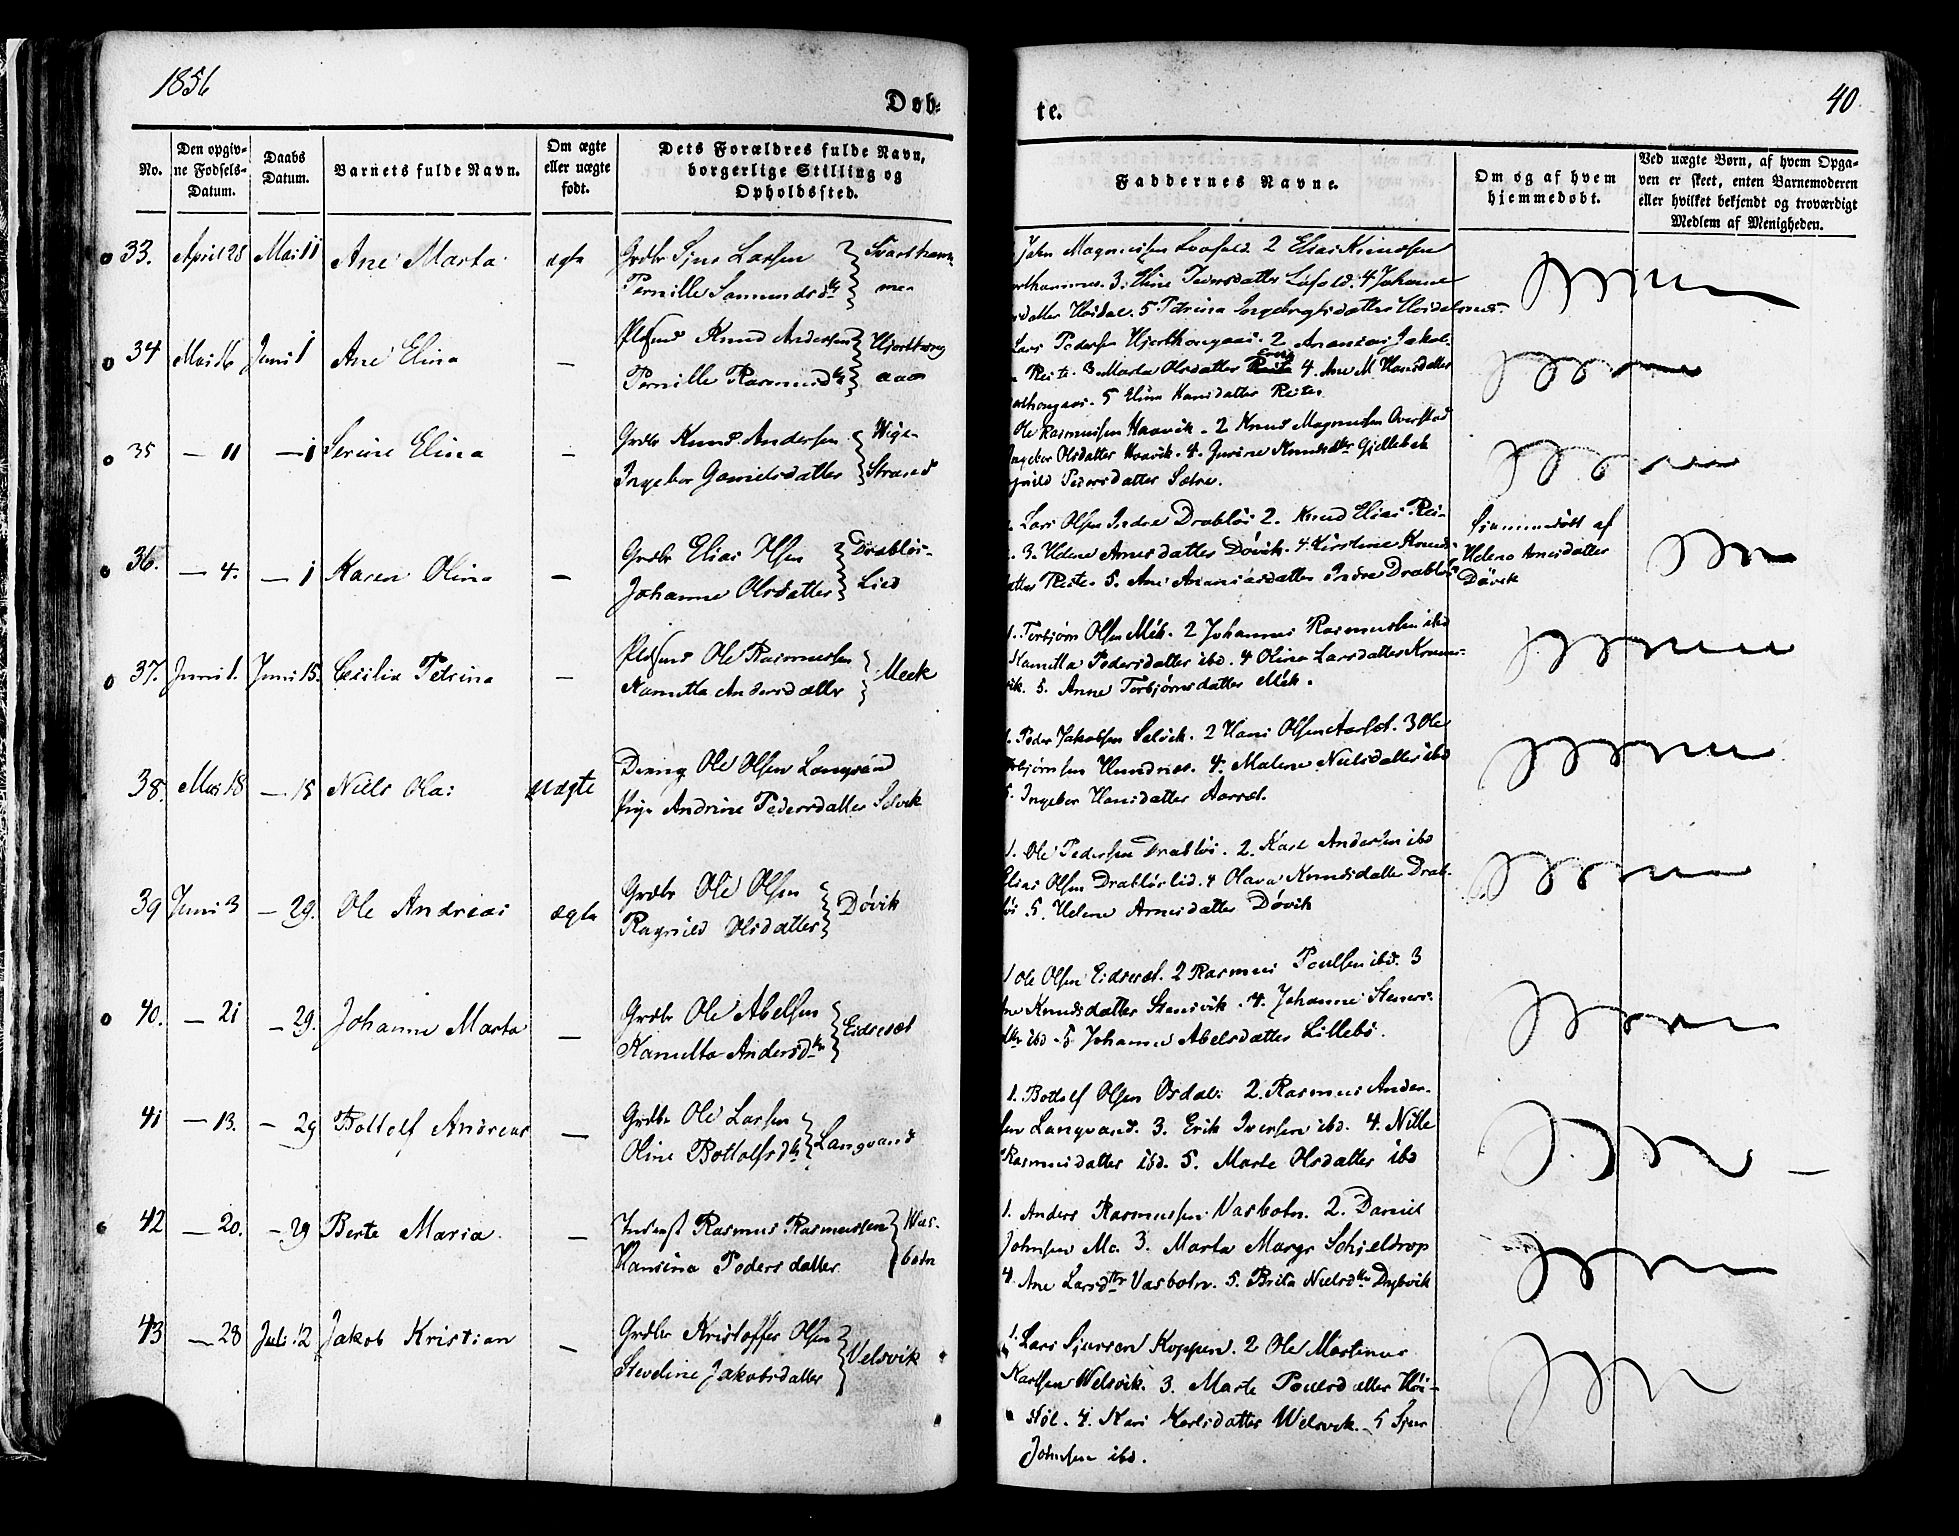 1856
Døb-
te.
40
No.
Den opgiv-
ne Fødsels-
Datum.
Daabs
Datum.
Barnets fulde Navn.
Om ægte
eller uægte
født.
Dets Forældres fulde Navn,
borgerlige Stilling og
Opholdssted.
Faddernes Navne.
Om og af hvem
hjemmedøbt.
Ved uægte Børn, af hvem Opga-
ven er skeet, enten Barnemoderen
eller hvilket bekjendt og troværdigt
Medlem af Menigheden.
33. April 28 Mai 11 Ane Marta ægte Grdbr Sjur Larsen
Pernille Samundsdtr
John Magnussen 2 Elias Knudsen
3. Pedersdatter 4 Johanne
5 Petrina Ingebrigtsdatter
34 Mai 16 Juni 1 Ane Elina — Plsmd Knud Andersen
Pernille Rasmusdtr
Lars Pedersen Hjorthongaas. 2 Ananias Jakob.
Reite. 3 Marta Olsdatter 4. Ane M. Hansdatter
5 Elina Hansdatter Reite.
35 — 11 — 1 Serine Elina — Grdbr Knud Andersen Vige-
Ingebor Gamelsdatter Strand
Ole Rasmussen Haavik. 2 Knud Magnussen Overstad
Ingebor Olsdatter Haavik. 4. Gurine Knudsdtr Gjellebek
Pedersdatter Sætre.
36. — 4. — 1 Karen Olina — Grdbr Elias Olsen Drabløs-
Johanne Olsdatter Lied
Lars Olsen Indre Drabløs 2. Knud Elias Rei-
3. Helene Arnesdatter Døvik. 4. Kirstine Knuds-
datter Reite 5. Ane Ananiasdatter Indre Drabløs
Hjemmedøbt af
Helene Arnesdatter
Døvik
37. Juni 1. Juni 15. Cecilia Petrina — Plsmd Ole Rasmussen
Kanutta Andersdatter Meek
1. Torbjørn Olsen Mek. 2 Johannes Rasmussen ibd
Pedersdatter ibd. 4 Olina Larsdatter
vik. 5. Anne Torbjørnsdatter Mek.
38. Mai 18 — 15 Niels Olai Uægte Dreng Ole Olsen Langvand
Pige Andrine Pedersdatter Selvik
1. Peder Jakobsen Selvik. 2 Hans Olsen Aarset. 3 Ole
Torbjørnsen Hundnes. 4. Malene Nielsdatter ibd
5. Ingebor Hansdatter Aarset.
39 Juni 3 — 29. Ole Andreas ægte Grdbr Ole Olsen
Ragnild Olsdatter Døvik
1. Ole Pedersen Drabløs. 2. Karl Andersen ibd
Elias Olsen Drabløslid. 4 Olava Knudsdatter Drab-
løs 5. Helene Arnesdatter Døvik
40. — 21 — 29. Johanne Marta — Grdbr Ole Abelsen
Kanutta Andersdtr Eidseset
1 Ole Olsen Eidseset. 2 Rasmus Poulsen ibd. 3
Knudsdatter Stensvik. 4. Johanne
dtr ibd. 5 Johanne Abelsdatter Lillebø.
41 — 13. — 29 Bottolf Andreas — Grdbr Ole Larsen
Oline Bottolfsdtr Langvand
1. Bottolf Olsen Osdal. 2. Rasmus Ander-
sen Langvand. 3. Erik Iversen ibd. 4. Nille
Rasmusdatter ibd. 5. Marte Olsdatter ibd
42 — 20. — 29 Berte Maria. — Inderst Rasmus Rasmussen Vas-
Hansina Pedersdatter. botn
1. Anders Rasmussen Vasbotn. 2. Daniel
Johnsen Mo. 3. Marta Margr Schjeldrop
4. Ane Larsdtr Vasbotn. 5. Brita Nielsdtr Dybvik
43 — 28 Juli 12 Jakob Kristian — Grdbr Kristoffer Olsen
Stevdine Jakobsdatter Velsvik
1. Lars Sjursen Koppen. 2 Ole Martinus
Karlsen Welsvik. 3. Marte Poulsdatter Høi-
støl. 4. Kari Karlsdatter Welsvik. 5 Sjur
Johnsen ibd.